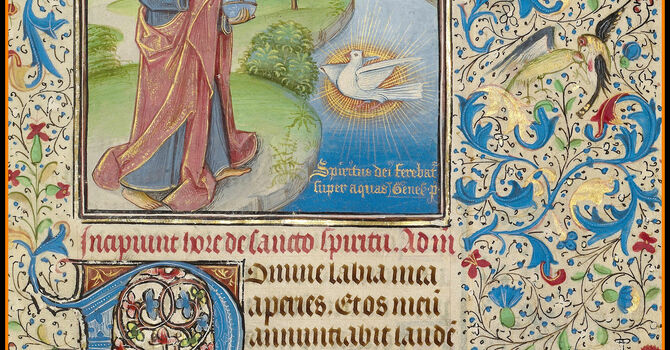 Spiritus dei ferebat
super aquas Genes p
Incipiunt hore de sancto spiritu. Ad m
Domine labia mea
aperies. Et os meū
annunciabit laudē